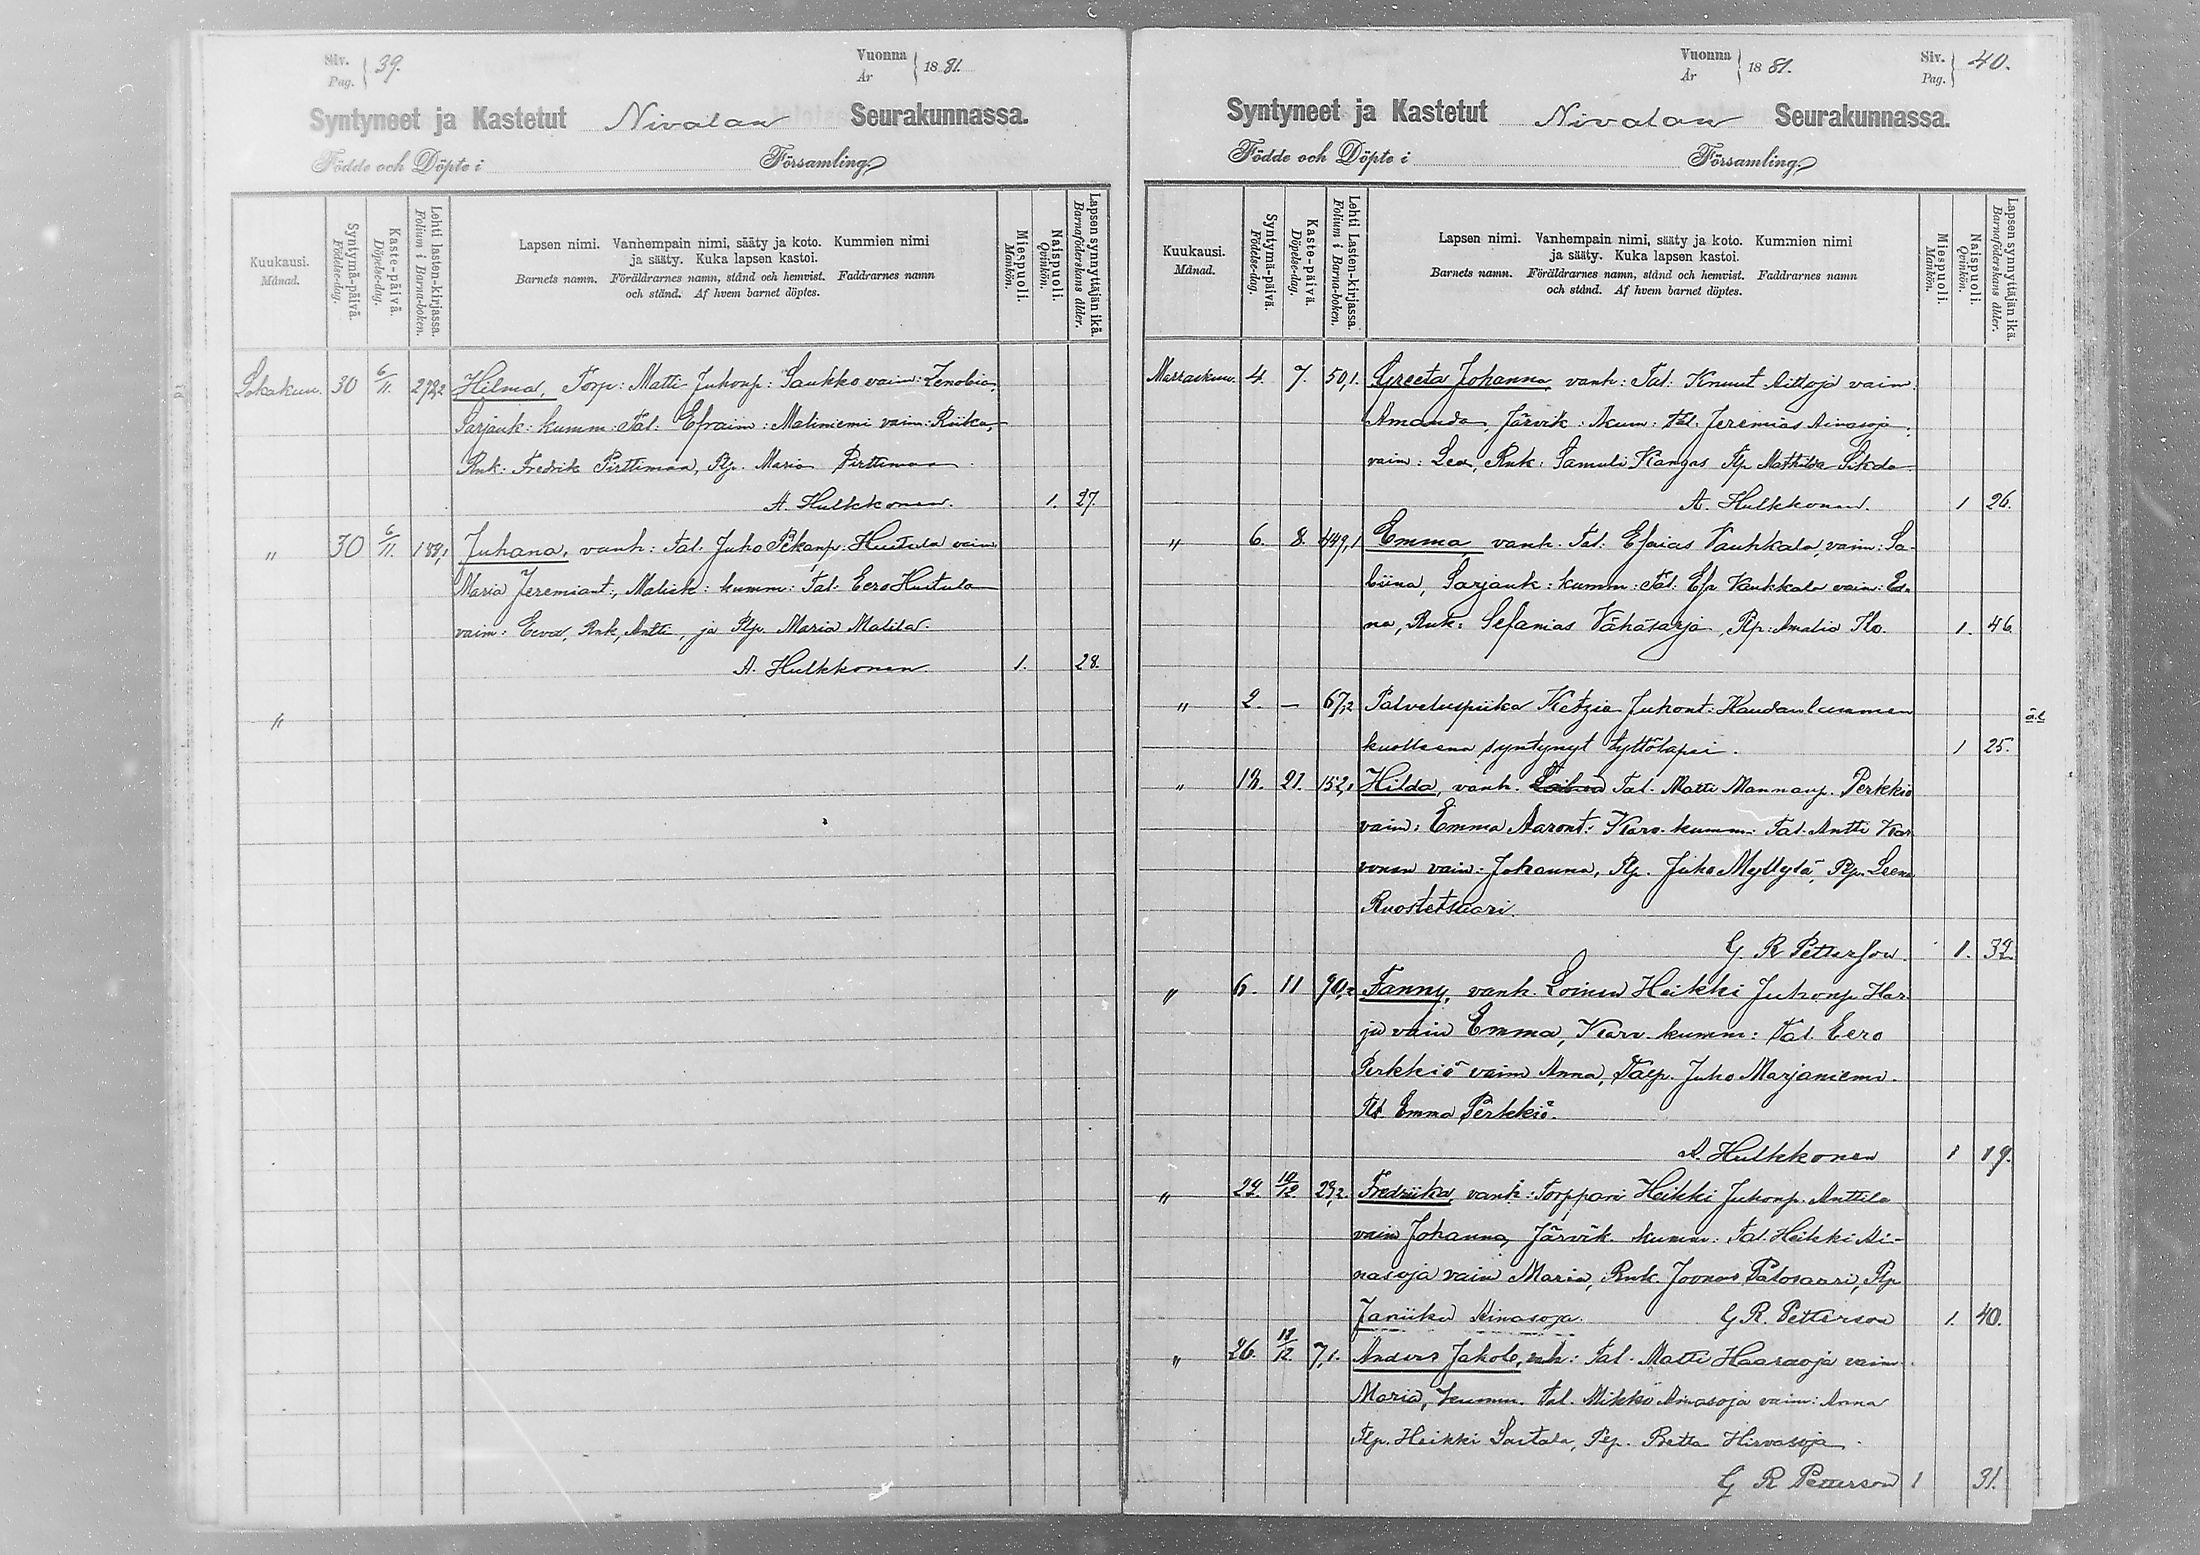 Siv. Pag. 39.
Vuonna År 1881.
Syntyneet ja Kastetut Nivalan Seurakunnassa.
Födde och Döpte i Församling.
Kuukausi. Månad.
Syntymä-päivä. Födelse-dag.
Kaste-päivä. Döpelse-dag.
Lehti lasten-kirjassa. Folium i Barna-boken.
Lapsen nimi. Vanhempain nimi, sääty ja koto. Kummien nimi
ja sääty. Kuka lapsen kastoi.
Barnets namn. Föräldrarnes namn, stånd och hemvist. Faddrarnes namn
och stånd. Af hvem barnet döptes.
Miespuoli. Mankön.
Naispuoli. Qvinkön.
Lapsen synnyttäjän ikä. Barnaföderskans ålder.
Lokakuu. 30 6/11. 278,2 Hilma, Torp: Matti Juhonp: Saukko vaim: Zenobia,
Sarjank: kumm: Tal. Efraim: Maliniemi vaim: Riika,
Rnk: Fredrik Pirttimaa, Plp. Maria Pirttimaa.
A. Hulkkonen. 1. 27.
" 30 6/11. 188,1 Juhana, vanh: Tal. Juho Pekanp: Huitula vaim
Maria Jeremiant., Malisk: kumm: Tal. Eero Huitula
vaim: Eeva, Rnk, Antti, ja Plp. Maria Malila.
A. Hulkkonen 1. 28.
"
Vuonna År 1881.
Siv. Pag. 40.
Syntyneet ja Kastetut Nivalan Seurakunnassa.
Födde och Döpte i Församling.
Kuukausi. Månad.
Syntymä-päivä. Födelse-dag.
Kaste-päivä. Döpelse-dag.
Lehti Lasten-kirjassa. Folium i Barna-boken.
Lapsen nimi. Vanhempain nimi, sääty ja koto. Kummien nimi
ja sääty. Kuka lapsen kastoi.
Barnets namn. Föräldrarnes namn, stånd och hemvist. Faddrarnes namn
och stånd. Af hvem barnet döptes.
Miespuoli. Mankön.
Naispuoli. Qvinkön.
Lapsen synnyttäjän ikä. Barnaföderskans ålder.
Marraskuu. 4. 7. 50,1. Greeta Johanna, vanh: Tal: Knuut Aittoja vaim
Amanda, Järvik: kum: Tal. Jeremias Ainasoja
vaim: Lea, Rnk: Samuli Kangas Plp Mathilda
A. Hulkkonen. 1 26.
" 6. 8. 449,1 Emma, vanh. Tal: Esaias Vauhkala, vaim: Sa-
biina, Sarjank: kumm: Tal: Efr Vauhkala vaim: Ed-
na, Rnk: Sefanias Vähäsarja, Plp: Amalia Ilo. 1. 46.
" 2. — 67,2 Palveluspiika Ketzia Juhont: Haudanlummen
kuolleena syntynyt tyttölapsi. 1 25.
" 13. 21. 152,1 Hilda, vanh. Tal. Matti Mannanp. Perkkiö
vaim: Emma Aaront: Karv. kumm: Tal. Antti Kar
vonen vaim: Johanna, Plp. Juho Myllylä, Plp. Leena
Ruostetsaari.
G R Petterson. 1. 32.
" 6. 11 90,2 Fanny, vanh. Loinen Heikki Juhonp. Har-
ju vaim Emma, Karv. kumm: Tal. Eero
Perkkiö vaim Anna, Talp. Juho Marjaniemi.
Tlt. Emma Perkkiö.
A. Hulkkonen 1 19.
" 29. 10/12 29,2. Fredriika, vanh: Torppari Heikki Juhonp. Anttila
vaim Johanna, Järvik. kumm: Tal. Heikki Ai-
nasoja vaim Maria, Rnk. Joonas Palosaari, Plp
Janiika Ainasoja. G. R. Petterson 1. 40.
" 26. 18/12. 7,1. Anders Jakob, vanh: Tal. Matti Haaraoja vaim
Maria, kumm. Tal. Mikko Ainasoja vaim: Anna
Tlp. Heikki Sartala, Plp. Pretta Hirvasoja.
G R Petterson 1 31.